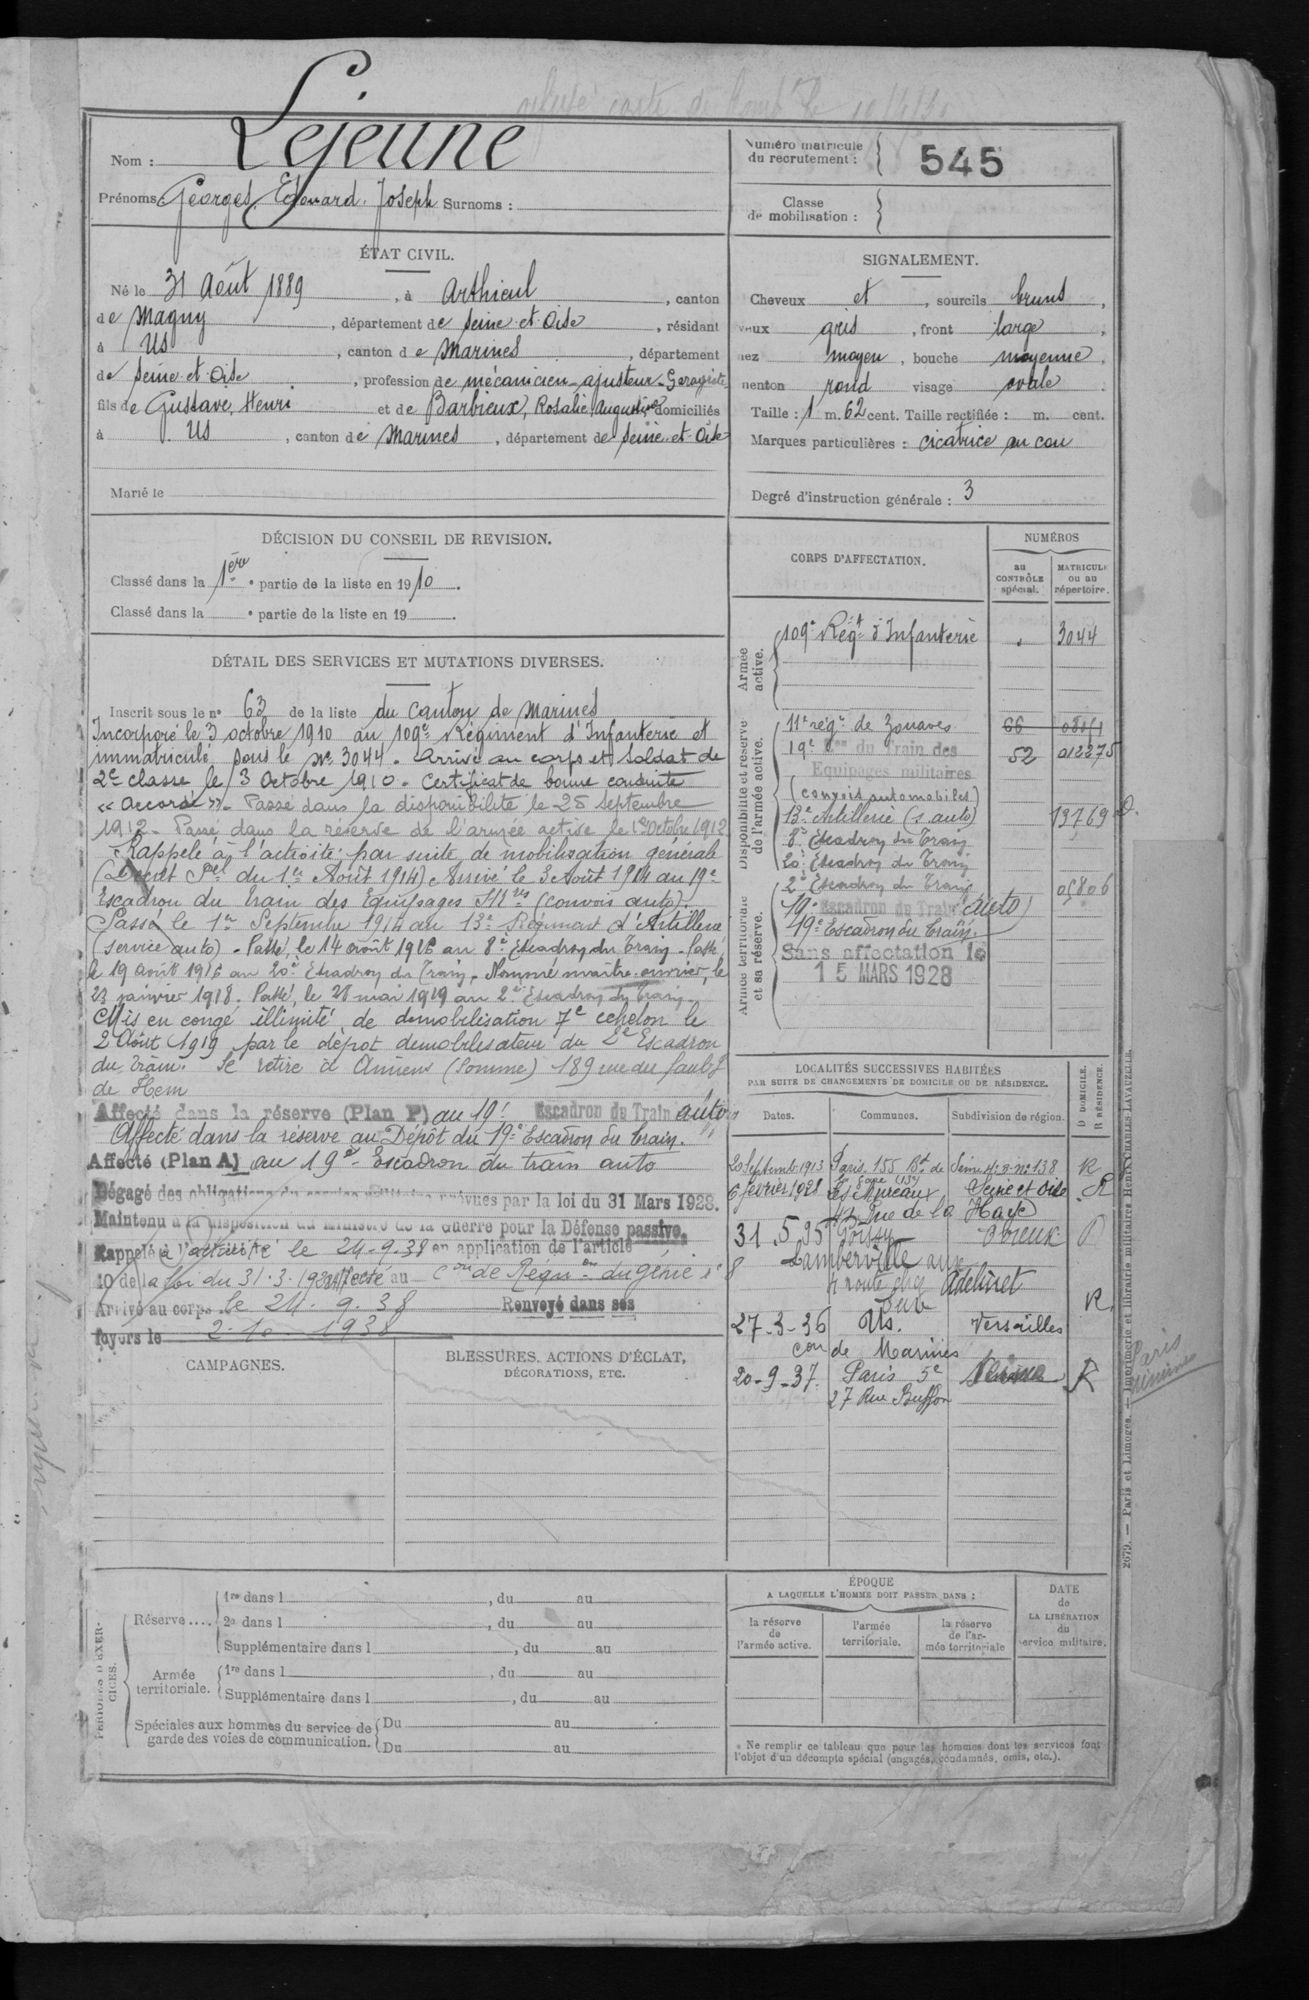 Nom : Lejeune
Prénoms : Georges, Edouard, Joseph Surnoms :
Numéro matricule
du recrutement : 545
Classe
de mobilisation :
ÉTAT CIVIL.
Né le 31 Août 1889, à Arthieul, canton
de Magny, département de Seine et Oise, résidant
à Us, canton de Marines, département
de Seine et Oise, profession de mécanicien-ajusteur-Garagiste
fils de Gustave, Henri et de Barbieux, Rosalie, Augustine domiciliés
à Us, canton de Marines, département de Seine et Oise
Marié le
SIGNALEMENT.
Cheveux et, sourcils bruns,
yeux gris, front large,
nez moyen, bouche moyenne,
menton rond visage ovale.
Taille : 1 m. 62 cent. Taille rectifiée : m. cent.
Marques particulières : cicatrice au cou
Degré d'instruction générale : 3
DÉCISION DU CONSEIL DE REVISION.
Classé dans la 1ère partie de la liste en 1910.
Classé dans la e partie de la liste en 19
DÉTAIL DES SERVICES ET MUTATIONS DIVERSES.
Inscrit sous le no 63 de la liste du Canton de Marines
Incorporé le 3 octobre 1910 au 109e Régiment d'Infanterie et
immatriculé sous le No 3044. Arrivé au corps et Soldat de
2e classe le 3 Octobre 1910. Certificat de bonne conduite
« accordé ». Passé dans la disponibilité le 25 septembre
1912. Passé dans la réserve de l'armée active le 1er Octobre 1912
Rappelé à l'activité par suite de mobilisation générale
(Décret Pel du 1er Août 1914). Arrivé le 3 Août 1914 au 19e
Escadron du train des Equipages Mres (convois auto).
Passé le 1er Septembre 1914 au 13e Régiment d'Artillerie
(service auto). Passé, le 14 août 1916 au 8e Escadron du Train. Passé,
le 19 août 1916 au 20e Escadron du Train. Nommé maître-ouvrier, le
23 janvier 1918. Passé, le 28 mai 1919 au 2e Escadron du Train.
Mis en congé illimité de démobilisation 7e échelon le
2 Août 1919 par le dépot démobilisateur du 2e Escadron
du Train. Se retire à Amiens (Somme) 189 rue du faubg
de Hem
Affecté dans la réserve (Plan P) au 19e Escadron du Train auto
Affecté dans la réserve au Dépôt du 19e Escadron du train.
Affecté (Plan A) au 19e Escadron du train auto
Dégagé des obligations du service militaire prévues par la loi du 31 Mars 1928.
Maintenu à la disposition du Ministre de la Guerre pour la Défense passive.
Rappelé à l'activité le 24-9-38 en application de l'article
10 de la loi du 31.3.1928 affecté au Con de Réqu on du génie
Arrivé au corps le 24.9.38 Renvoyé dans ses
foyers le 2-10-1938
CORPS D'AFFECTATION.
NUMÉROS
au
CONTRÔLE
spécial.
MATRICULE
ou au
répertoire.
Armée
active.
109e Régt d'Infanterie 3044
Disponibilité et réserve
de l'armée active.
11e régt de Zouaves 66
19e Eon du Train des 52 012275
Equipages militaires
(convois automobiles)
13e Artillerie (s. auto) 13769
8e Escadron du Train
20e Escadron du Train
Armée territoriale
et sa réserve.
2e Escadron du Train 05806
19e Escadron du Train (auto)
19e Escadron du train.
Sans affectation le
15 MARS 1928
LOCALITÉS SUCCESSIVES HABITÉES
PAR SUITE DE CHANGEMENTS DE DOMICILE OU DE RÉSIDENCE.
Dates. Communes. Subdivision de région.
D DOMICILE.
R RÉSIDENCE.
20 Septemb. 1913 Paris. 155 Bd de Seine 4e B. no 138 R
la Gare (13e)
6 février 1928 Les Mureaux Seine et Oise R
43 Rue de la Haye
31.5.35 Poissy
Lamberville
4 route chez
27-3-36 Us. Versailles R.
Con de Marines
20-9-37. Paris 5e Seine R
27 Rue Buffon
CAMPAGNES.
BLESSURES, ACTIONS D'ÉCLAT,
DÉCORATIONS, ETC.
PÉRIODES D'EXERCICES.
Réserve....
1re dans l , du au
2e dans l , du au
Supplémentaire dans l , du au
Armée
territoriale.
1re dans l , du au
Supplémentaire dans l , du au
Spéciales aux hommes du service de
garde des voies de communication.
Du au
Du au
ÉPOQUE
A LAQUELLE L'HOMME DOIT PASSER DANS :
la réserve
de
l'armée active.
l'armée
territoriale.
la réserve
de l'ar-
mée territoriale
DATE
de
LA LIBÉRATION
du
service militaire.
* Ne remplir ce tableau que pour les hommes dont les services font
l'objet d'un décompte spécial (engagés, condamnés, omis, etc.).
2679. — Paris et Limoges. — Imprimerie et librairie militaires Henri CHARLES-LAVAUZELLE.
Paris